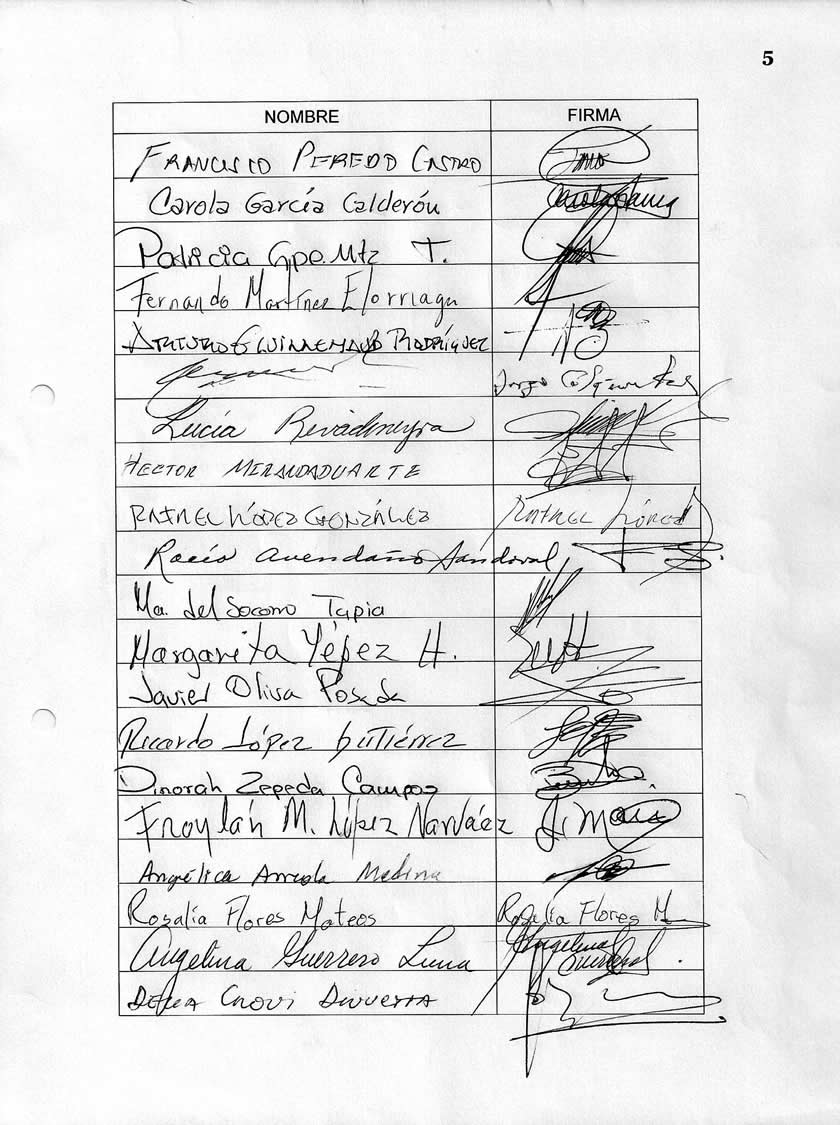 5
NOMBRE FIRMA
FRANCISCO PEREDO CASTRO
Carola García Calderón
Patricia Gpe. Mtz T.
Fernando Martínez Elorriaga
ARTURO GUILLEMAUD RODRÍGUEZ
Jorge
Lucía Rivadeneyra
HECTOR MIRANDA DUARTE
RAFAEL LÓPEZ GONZÁLEZ RAFAEL LÓPEZ
Rocío Avendaño Sandoval
Ma. del Socorro Tapia
Margarita Yépez H.
Javier Oliva Posada
Ricardo López Gutiérrez
Dinorah Zepeda Campos
Froylán M. López Narváez
Angélica Arreola Medina
Rosalía Flores Mateos Rosalía Flores M
Angelina Guerrero Luna Angelina Guerrero L
DELIA CROVI DRUETTA